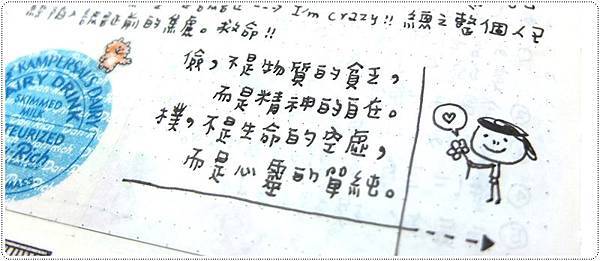 I'm crazy!! 總之整個人已
前的焦慮。救命!!
儉,不是物質的貧乏,
而是精神的自在。
樸,不是生命的空虛,
而是心靈的單純。
KAMPERSALS DAIRY
DAIRY DRINK
SKIMMED
MILK
PASTEURIZED
Rich